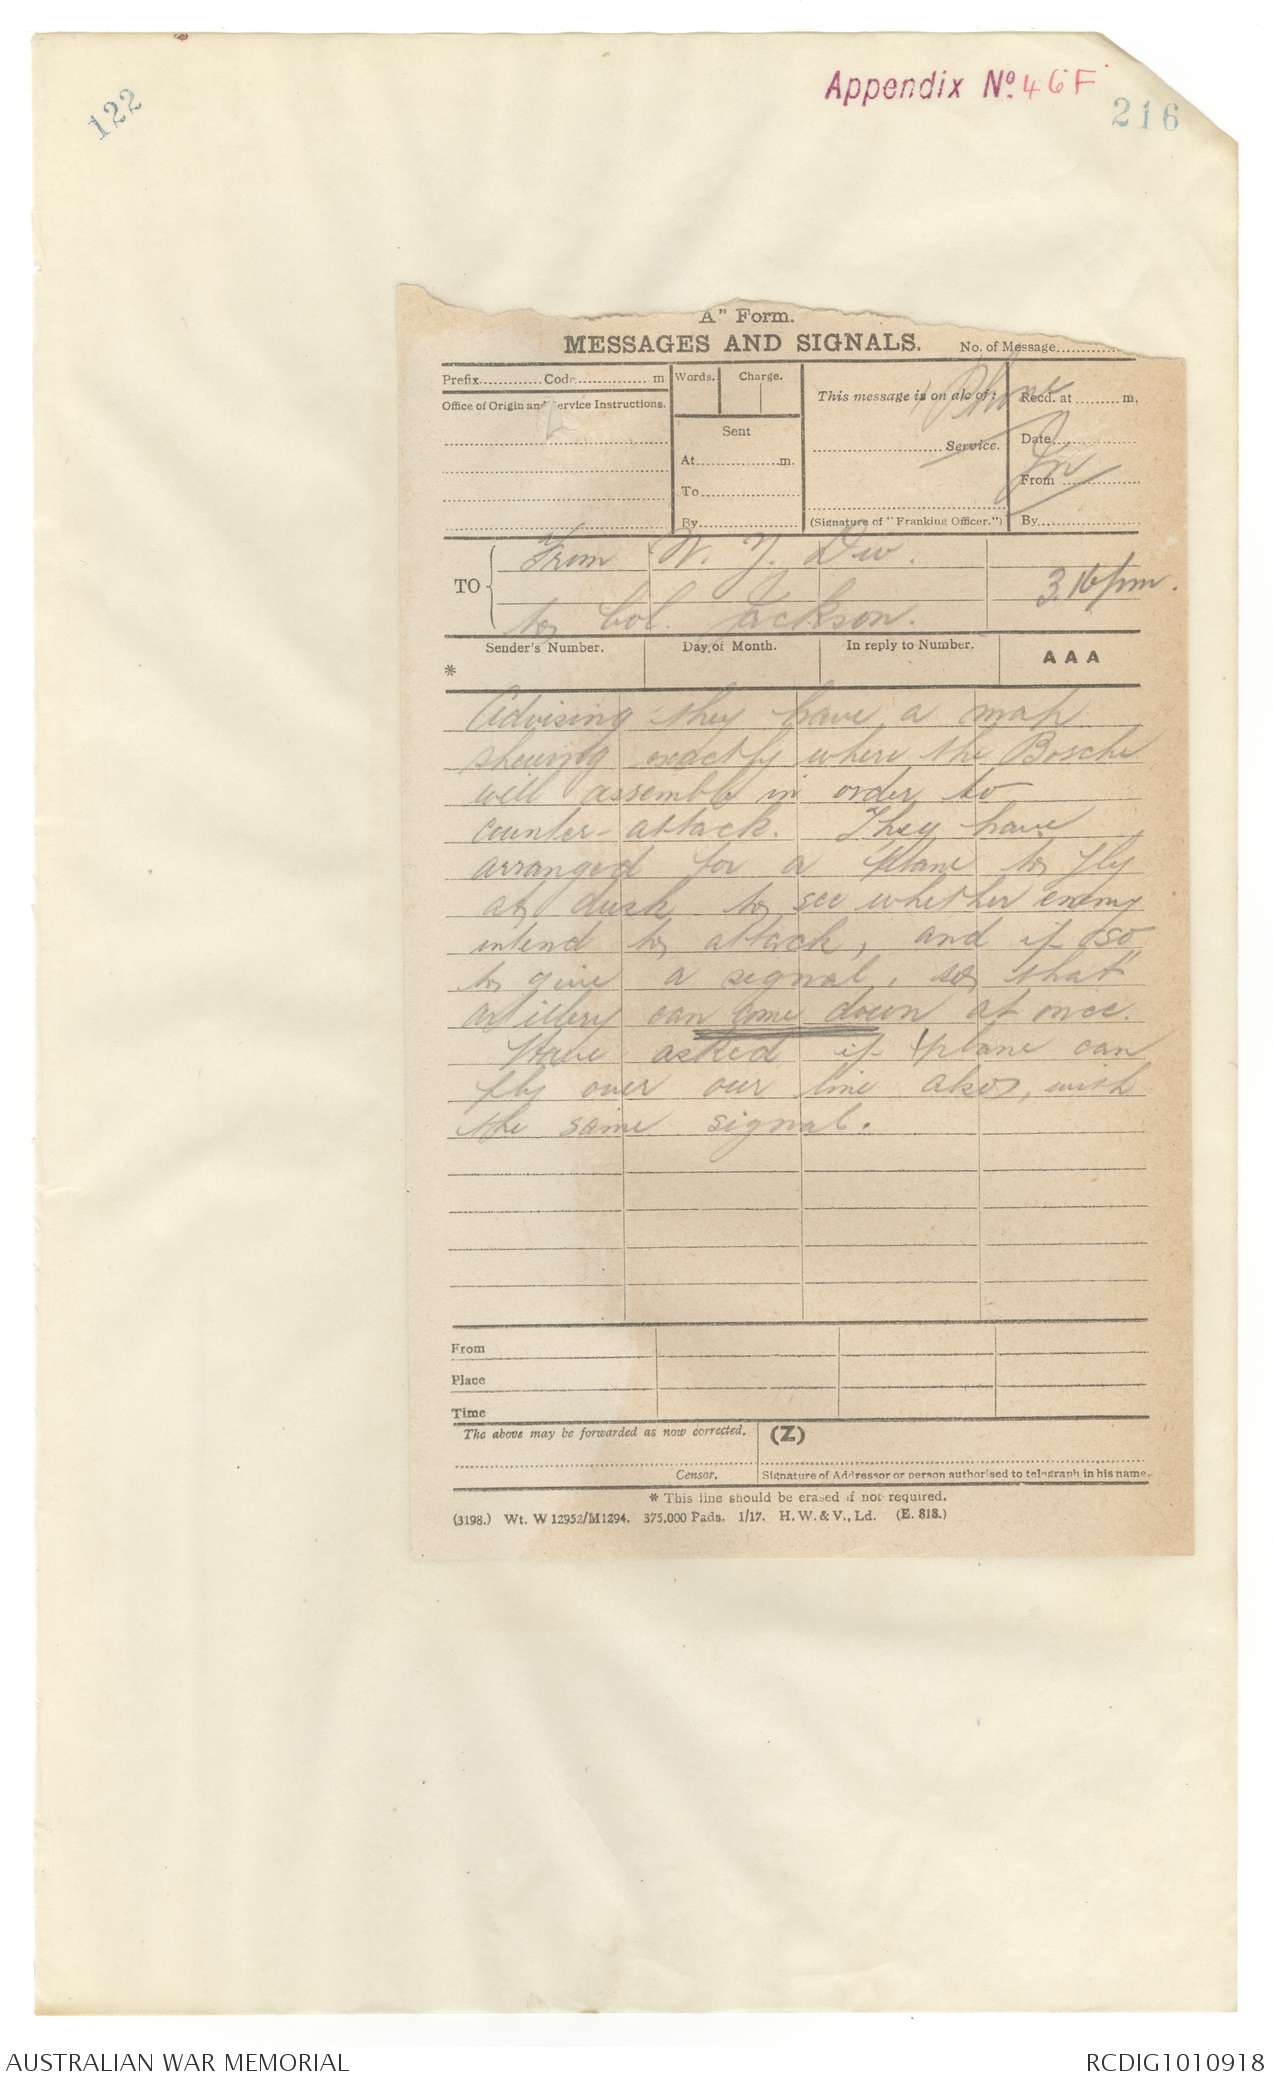 Appendix No. 46F
122
216
A" Form.
MESSAGES AND SIGNALS.
No. of Message
Prefix Code m
Words. Charge.
This message is on a/c of:
Recd. at m.
Phone
Office of Origin and Service Instructions.
Sent
Date
Service.
At m.
From
In
To
By
(Signature of "Franking Officer.")
By
TO
From N. Z. Div.
3.16 pm.
to Col. Jackson.
Sender's Number.
Day of Month.
In reply to Number.
AAA
*
Advising they have a map
shewing exactly where the Bosche
will assemble in order to
counter-attack. They have
arranged for a 'plane to fly
at dusk to see whether enemy
intend to attack, and if so
to give a signal, so that
artillery can come down at once.
Have asked if 'plane can
fly over our line also, with
the same signal.
From
Place
Time
The above may be forwarded as now corrected.
(Z)
Censor.
Signature of Addressor or person authorised to telegraph in his name.
* This line should be erased if not required.
(3198.) Wt. W 12952/M1294. 375,000 Pads. 1/17. H. W. & V., Ld. (E. 818.)
AUSTRALIAN WAR MEMORIAL
RCDIG1010918